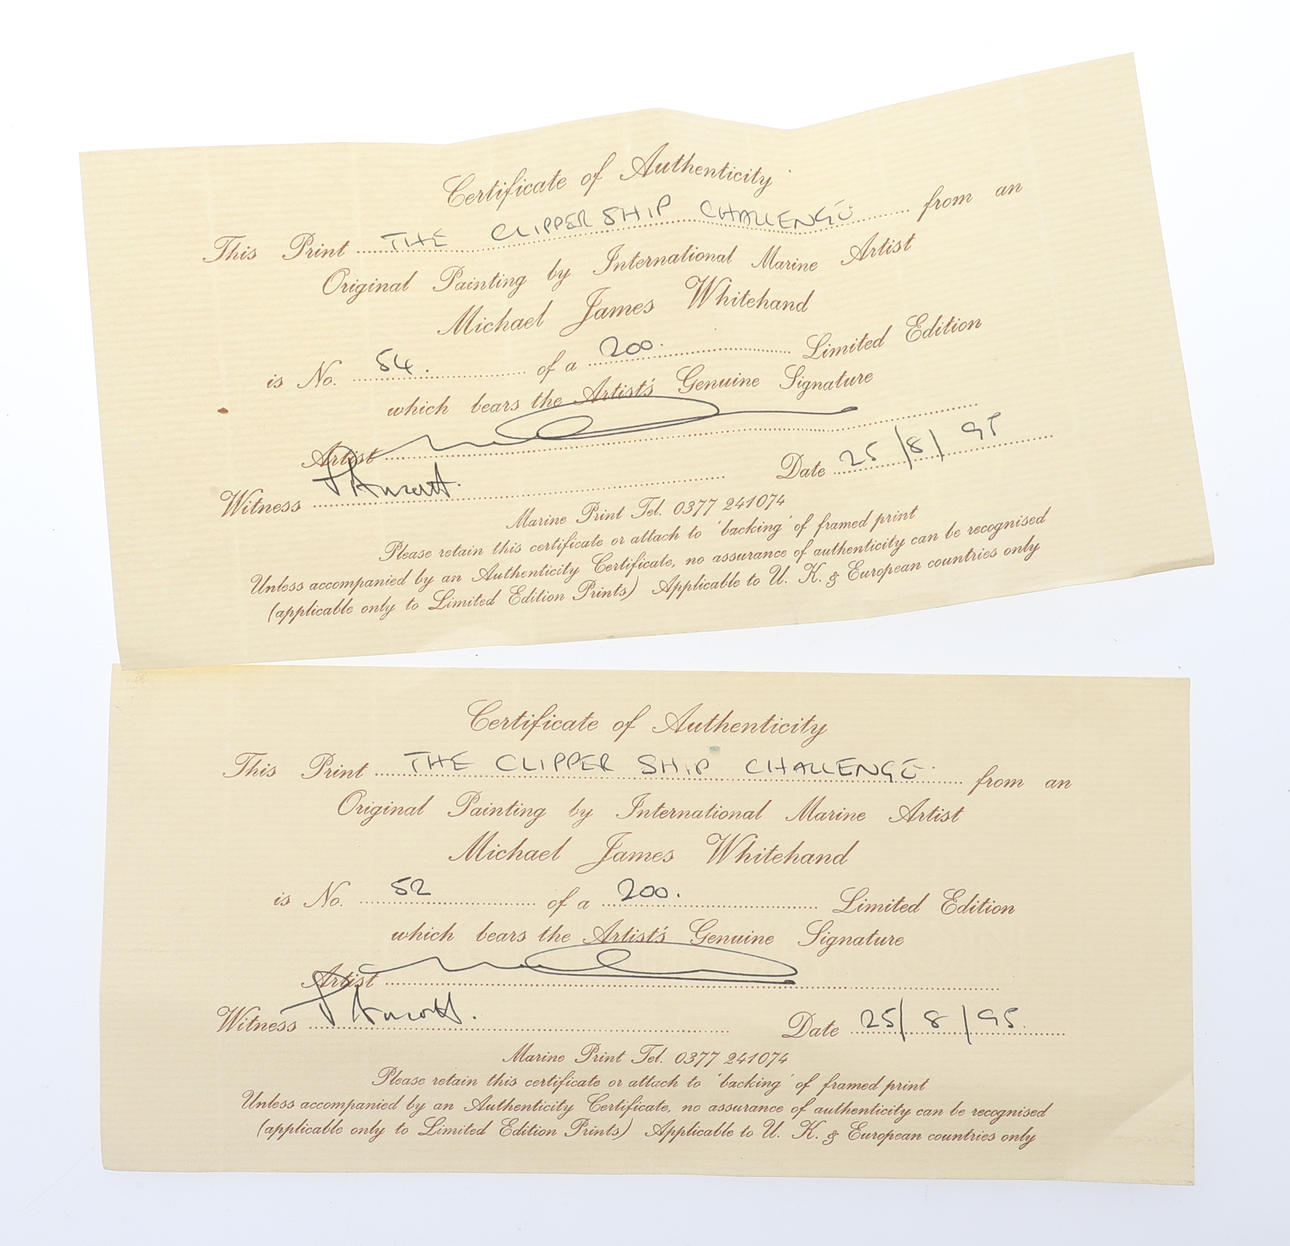 Certificate of Authenticity
This Print THE CLIPPER SHIP CHALLENGE from an
Original Painting by International Marine Artist
Michael James Whitehand
is No. 54. of a 200. Limited Edition
which bears the Artist's Genuine Signature
Artist
Witness Date 25/8/95
Marine Print Tel. 0377 241074
Please retain this certificate or attach to 'backing' of framed print
Unless accompanied by an Authenticity Certificate, no assurance of authenticity can be recognised
(applicable only to Limited Edition Prints) Applicable to U. K. & European countries only
Certificate of Authenticity
This Print THE CLIPPER SHIP CHALLENGE from an
Original Painting by International Marine Artist
Michael James Whitehand
is No. 52 of a 200. Limited Edition
which bears the Artist's Genuine Signature
Artist
Witness Date 25/8/95.
Marine Print Tel. 0377 241074
Please retain this certificate or attach to 'backing' of framed print
Unless accompanied by an Authenticity Certificate, no assurance of authenticity can be recognised
(applicable only to Limited Edition Prints) Applicable to U. K. & European countries only